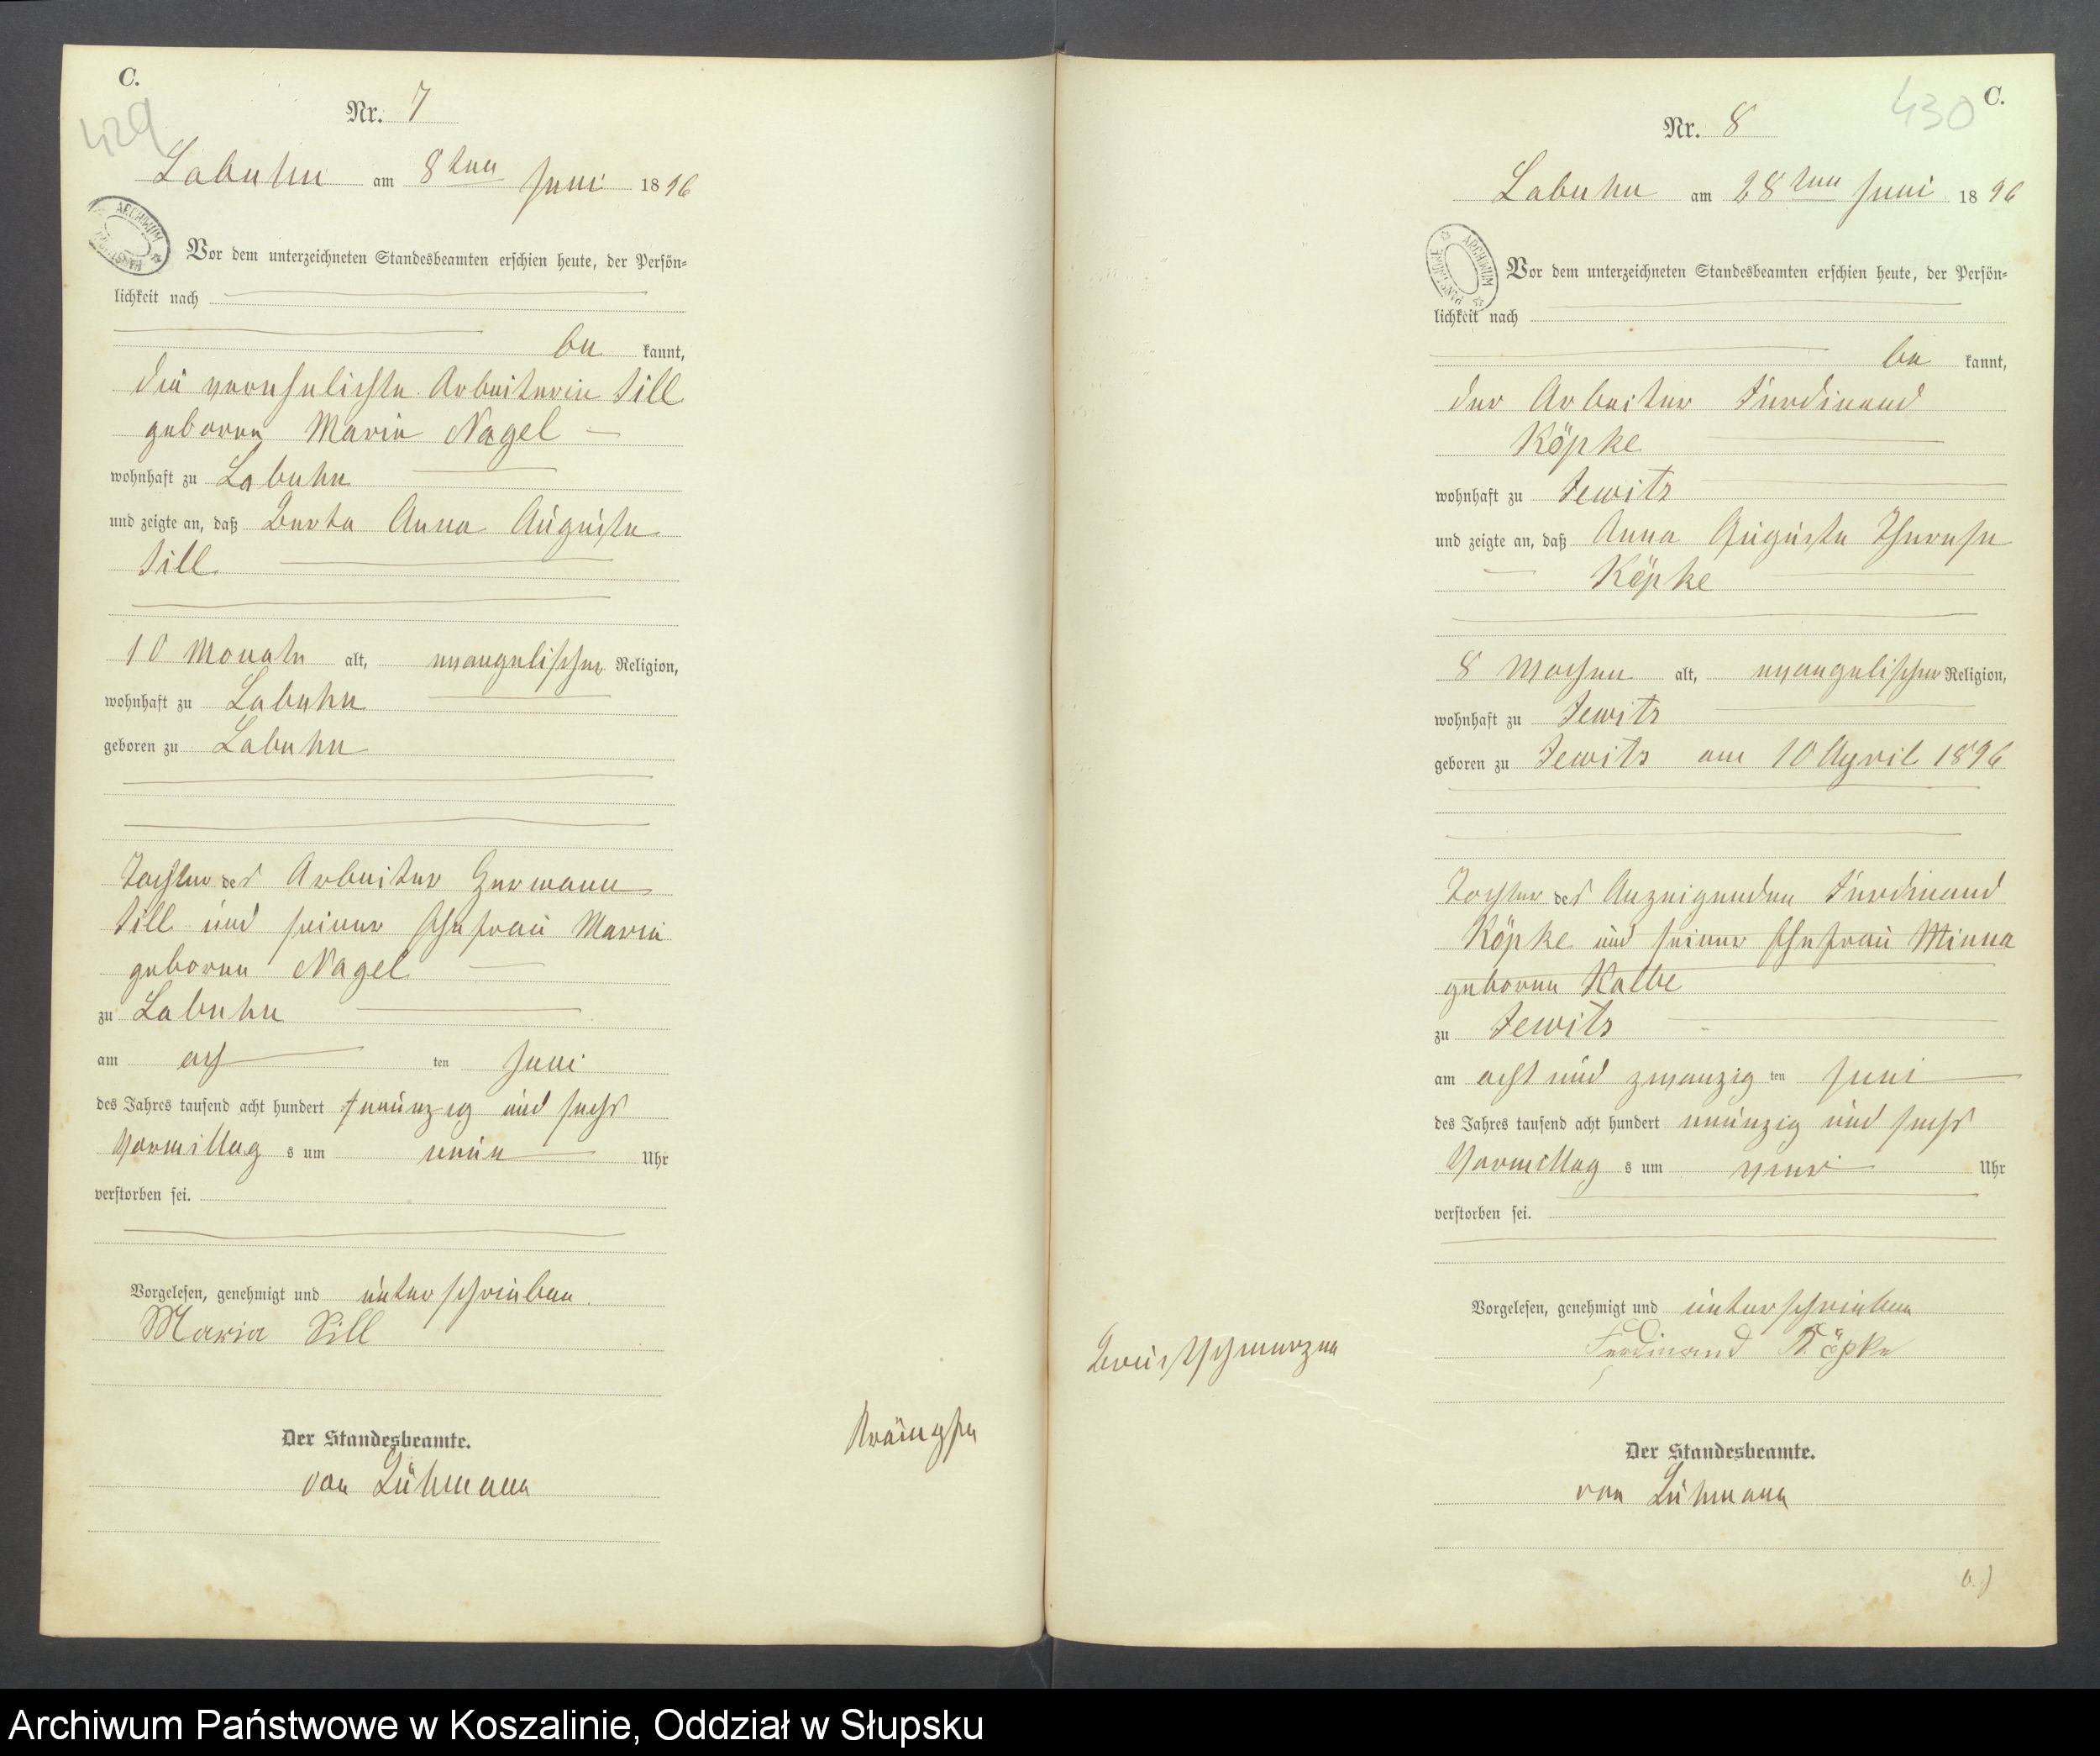 C.
429
Nr. 7
Labuhn am 8ten Juni 1896
ARCHIWUM PAŃSTWOWE
Vor dem unterzeichneten Standesbeamten erschien heute, der Persön-
lichkeit nach
be kannt,
die verehelichte Arbeiterin Sill
geborene Marie Nagel
wohnhaft zu Labuhn
und zeigte an, daß Berta Anna Auguste
Sill
10 Monate alt, evangelischer Religion,
wohnhaft zu Labuhn
geboren zu Labuhn
Tochter des Arbeiter Hermann
Sill und seiner Ehefrau Marie
geborene Nagel
zu Labuhn
am ach ten Juni
des Jahres tausend acht hundert neunzig und sechs
Vormittag s um neun Uhr
verstorben sei.
Vorgelesen, genehmigt und unterschrieben.
Maria Sill
Der Standesbeamte.
von Lühmann
Krämpfe
C.
430
Nr. 8
Labuhn am 28ten Juni 1896
ARCHIWUM PAŃSTWOWE
Vor dem unterzeichneten Standesbeamten erschien heute, der Persön-
lichkeit nach
be kannt,
der Arbeiter Ferdinand
Köpke
wohnhaft zu Jewitz
und zeigte an, daß Anna Auguste Therese
Köpke
8 Wochen alt, evangelischer Religion,
wohnhaft zu Jewitz
geboren zu Jewitz am 10 April 1896
Tochter des Anzeigenden Ferdinand
Köpke und seiner Ehefrau Minna
geborene Kalbe
zu Jewitz
am acht und zwanzig ten Juni
des Jahres tausend acht hundert neunzig und sechs
Vormittag s um vier Uhr
verstorben sei.
Vorgelesen, genehmigt und unterschrieben
Ferdinand Köpke
Brustschmerzen
Der Standesbeamte.
von Lühmann
Archiwum Państwowe w Koszalinie, Oddział w Słupsku